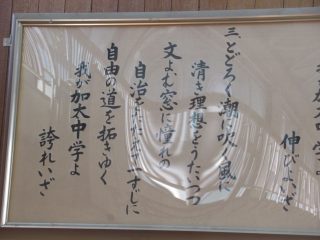 が加太中学よ
伸びよいざ
三、とどろく潮に吹く風に
清き理想をうたいつつ
文よむ窓に憧れの
自治を
すじに
自由の道を拓きゆく
我が加太中学よ
誇れいざ